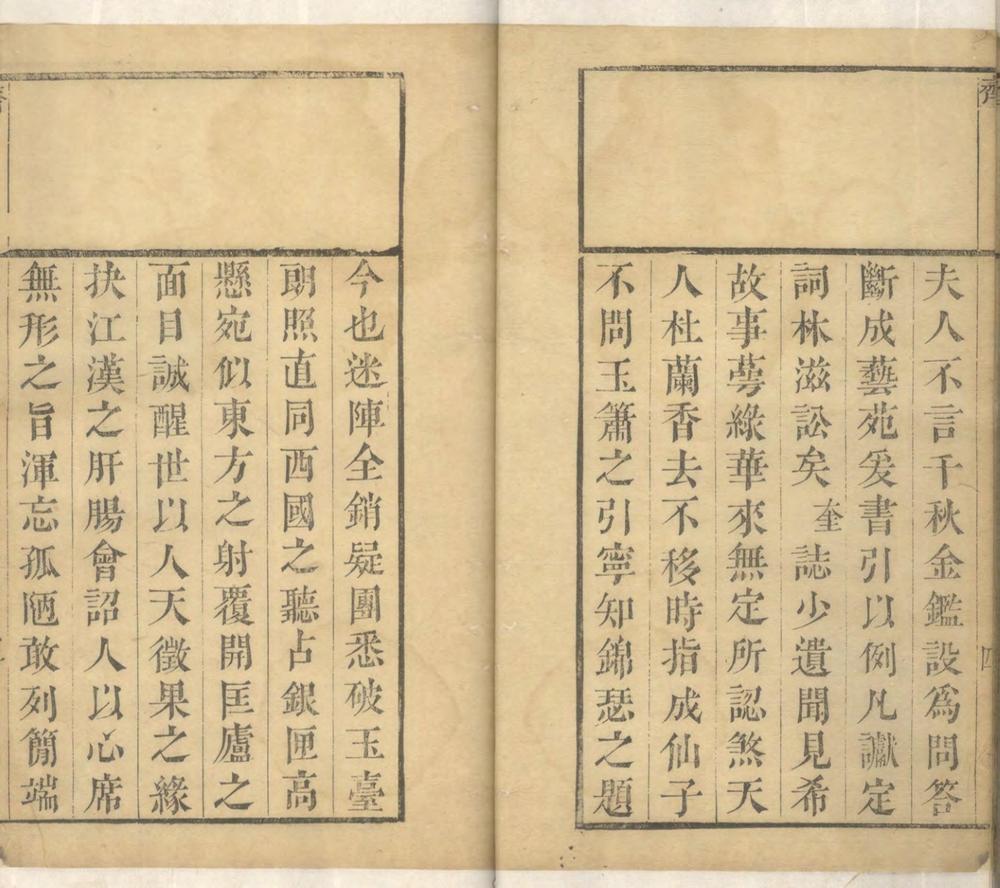 夫人不言千秋金鑑設為問答
斷成藝苑爰書引以例凡讞定
詞林滋訟矣 奎 誌少遺聞見希
故事萼綠華來無定所認煞天
人杜蘭香去不移時指成仙子
不問玉簫之引寧知錦瑟之題
今也迷陣全銷疑團悉破玉臺
朗照直同西國之聽占銀匣高
懸宛似東方之射覆開匡廬之
面目誠醒世以人天徵果之緣
抉江漢之肝腸會詔人以心席
無形之旨渾忘孤陋敢列簡端
四